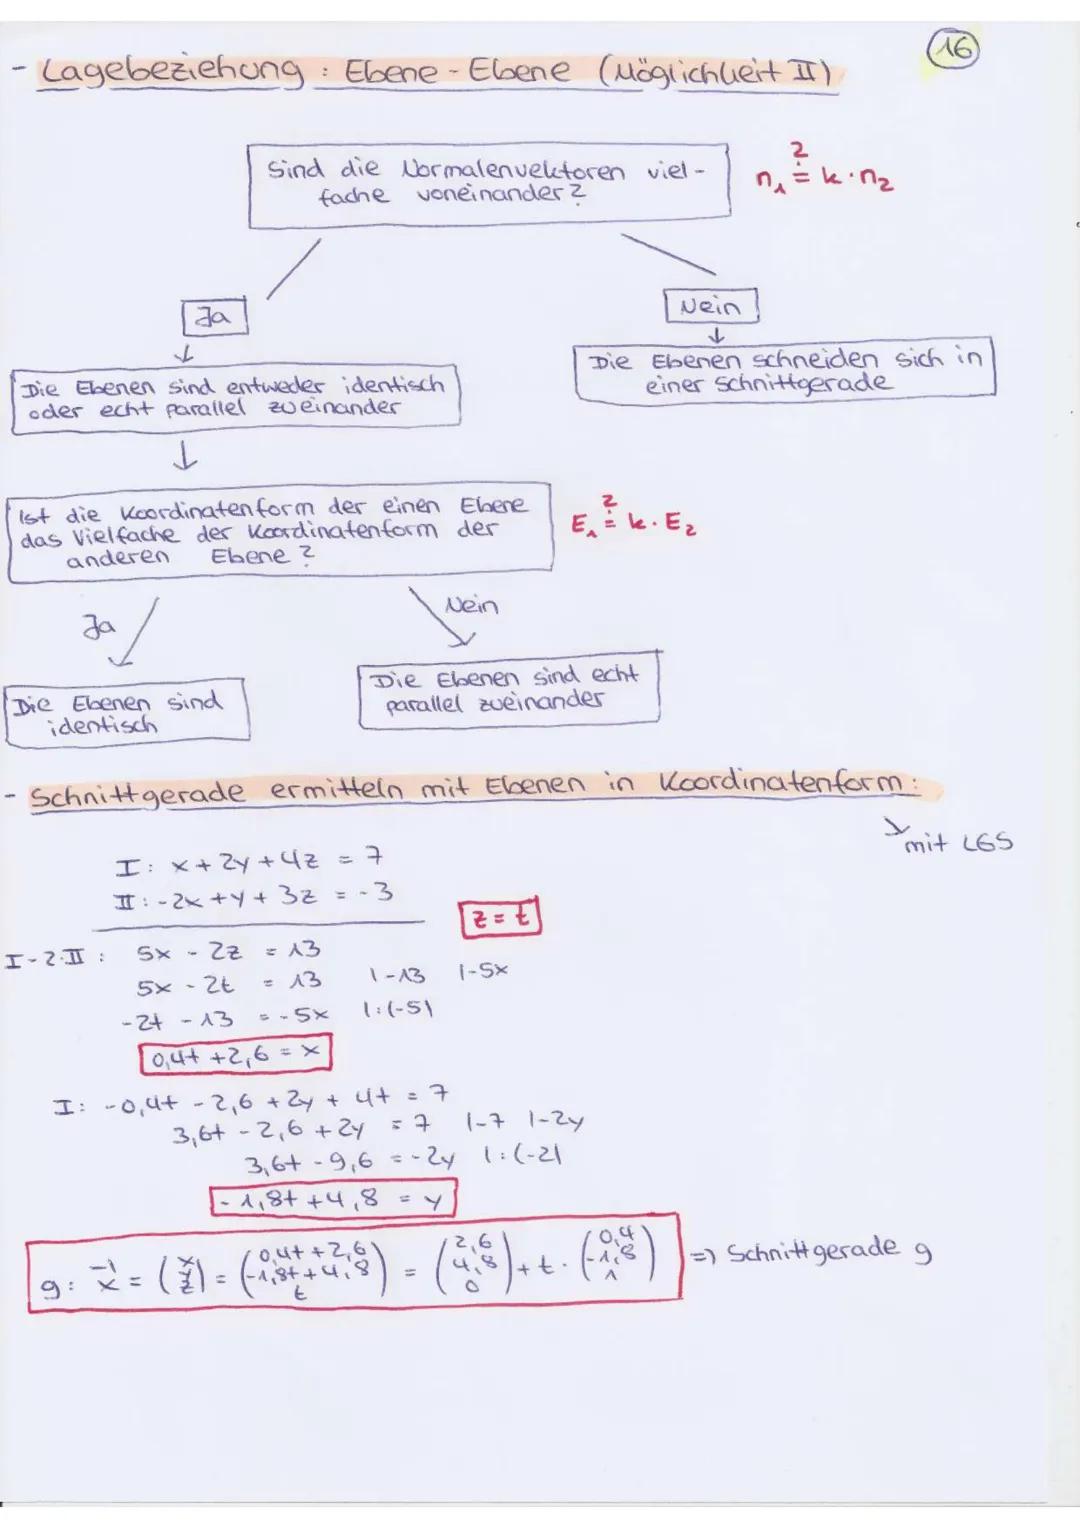 16
- Lagebeziehung : Ebene - Ebene (Möglichkeit II)
Sind die Normalenvektoren viel-
fache voneinander?
n₁ ≟ k·n₂
Ja
Nein
Die Ebenen sind entweder identisch
oder echt parallel zueinander
Die Ebenen schneiden sich in
einer Schnittgerade
Ist die Koordinatenform der einen Ebene
das Vielfache der Koordinatenform der
anderen Ebene?
E₁ ≟ k·E₂
Ja
Nein
Die Ebenen sind
identisch
Die Ebenen sind echt
parallel zueinander
- Schnittgerade ermitteln mit Ebenen in Koordinatenform:
↘ mit LGS
I: x + 2y + 4z = 7
II: -2x + y + 3z = -3
z = t
I - 2·II : 5x - 2z = 13
5x - 2t = 13 |-13 |-5x
-2t - 13 = -5x |:(-5)
0,4t + 2,6 = x
I: -0,4t - 2,6 + 2y + 4t = 7
3,6t - 2,6 + 2y = 7 |-7 |-2y
3,6t - 9,6 = -2y |:(-2)
-1,8t + 4,8 = y
g: x⃗ = (x y z) = (0,4t + 2,6 -1,8t + 4,8 t) = (2,6 4,8 0) + t · (0,4 -1,8 1) => Schnittgerade g